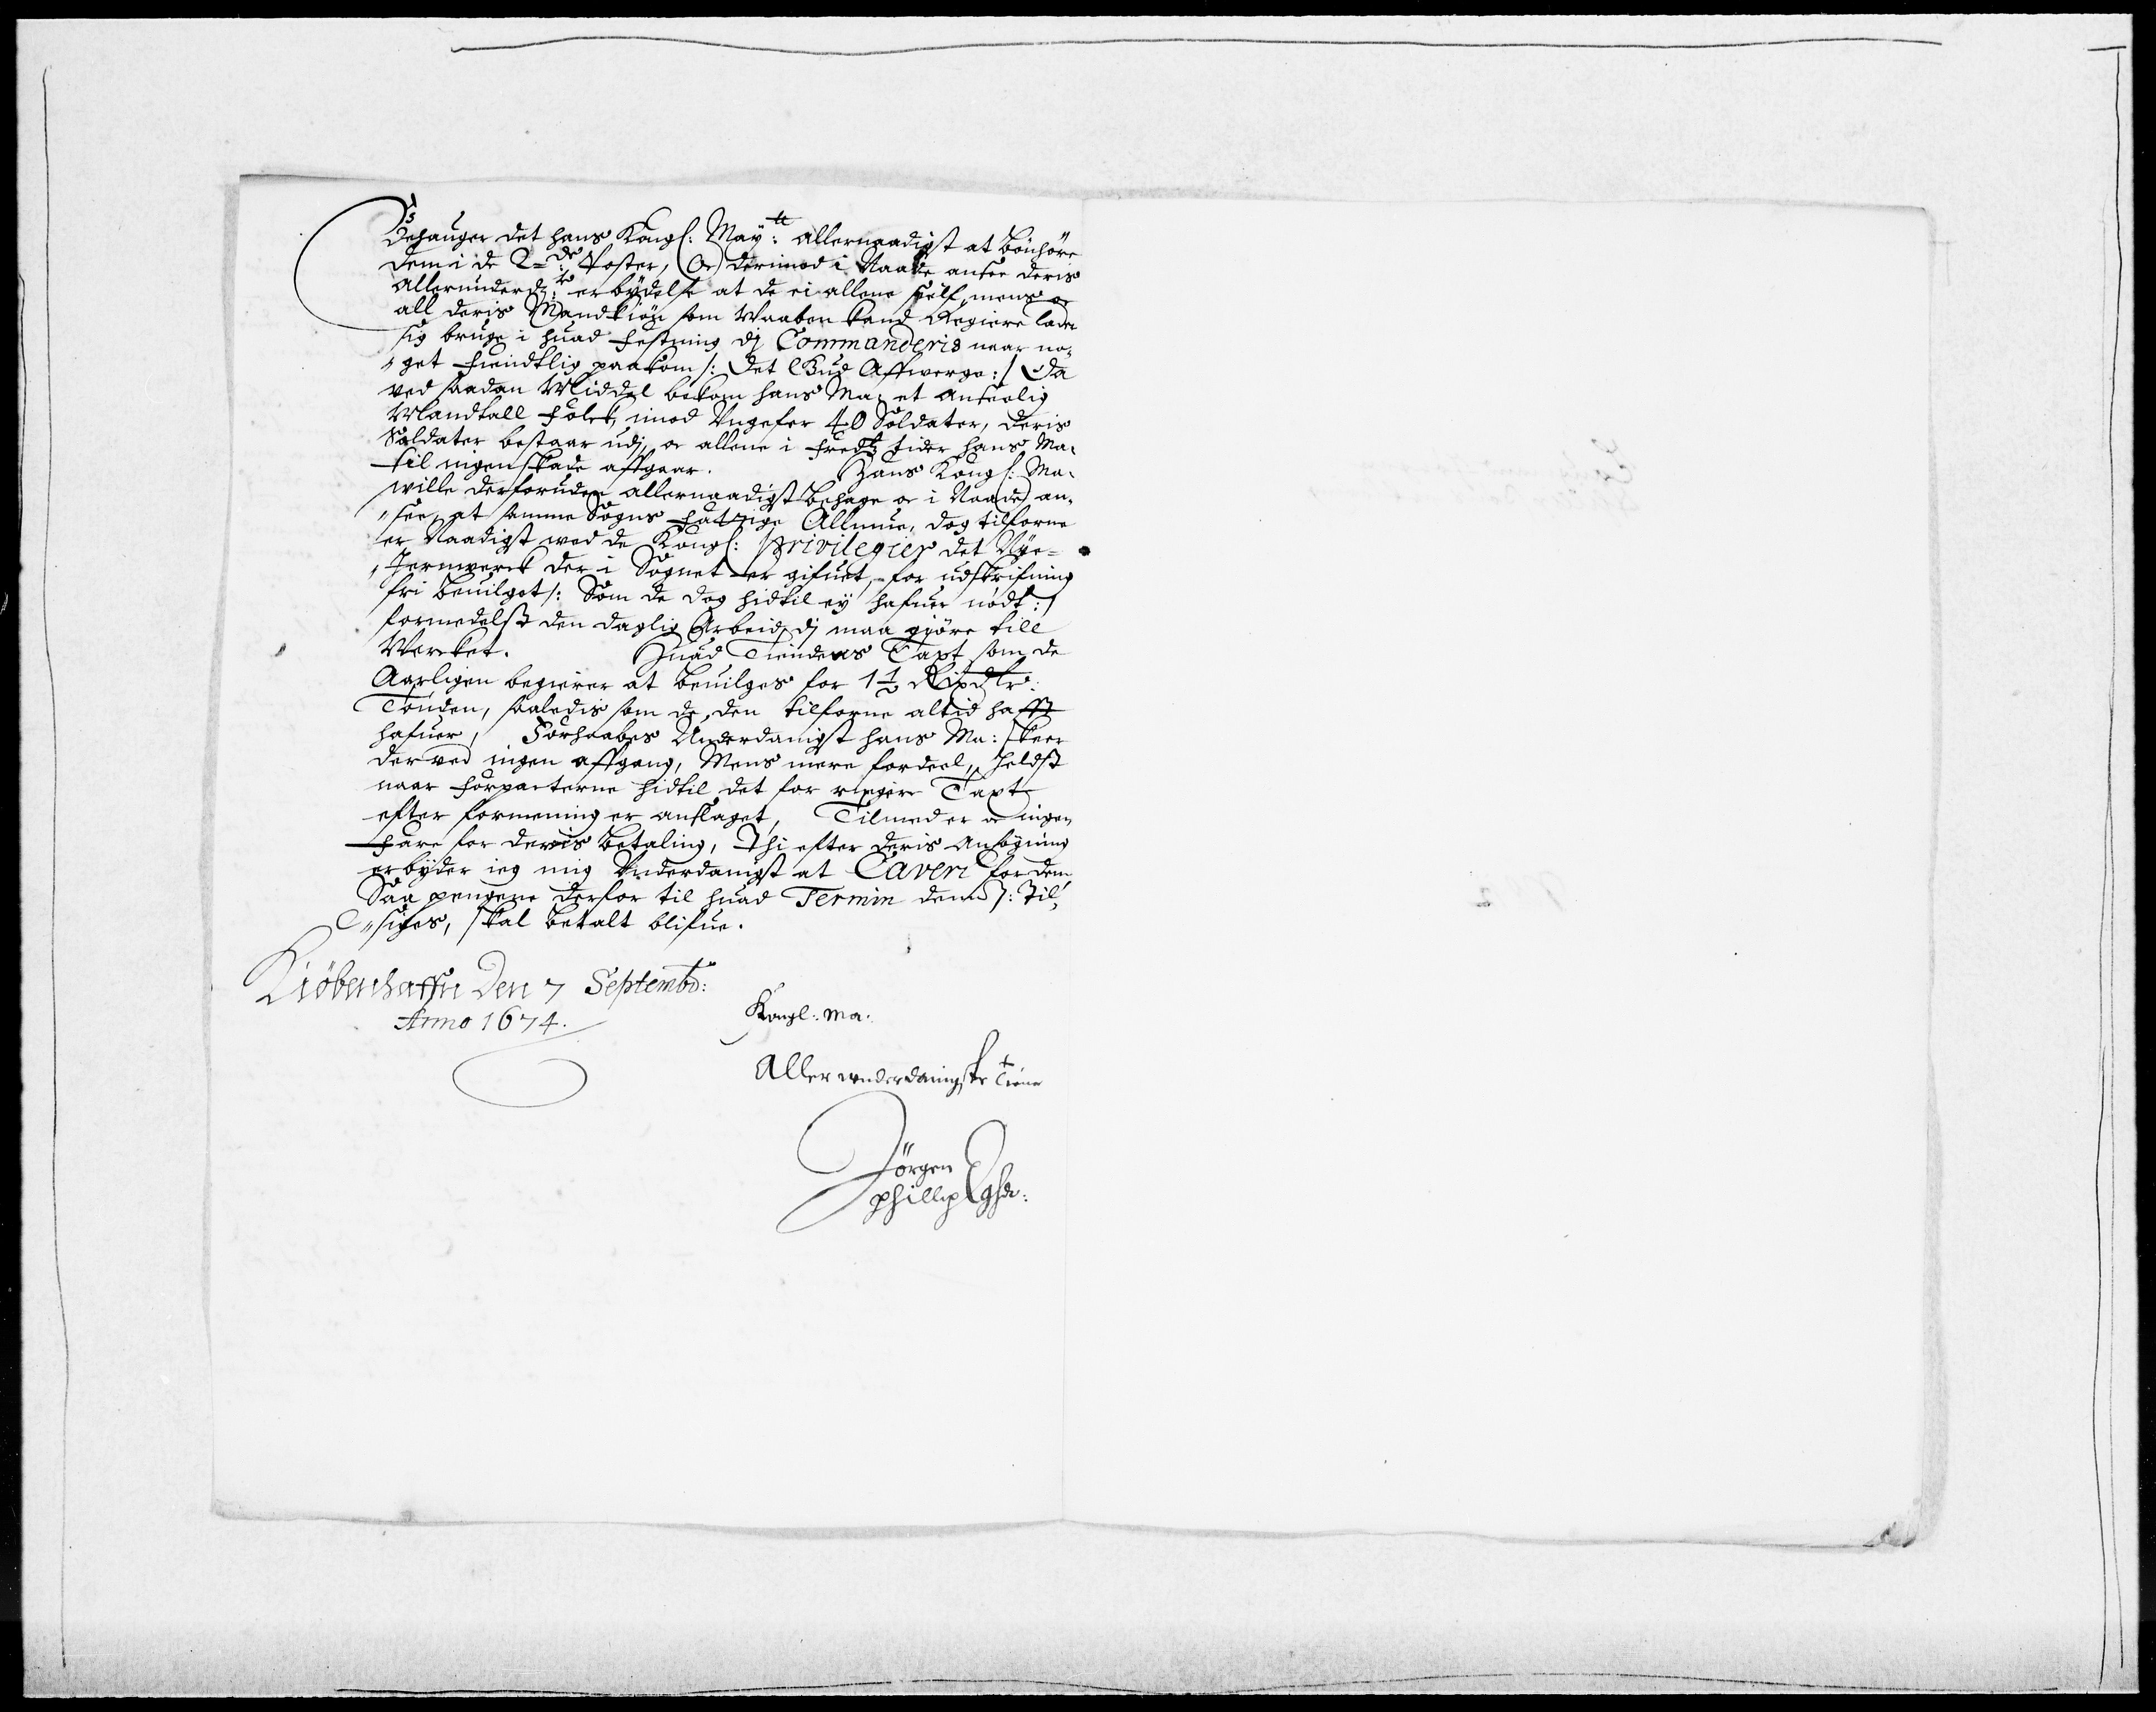 Behauger det hans Kongl: May:tt allernaadigst at bönhöre
dem i de 2=de: Poster, Oc derimod i Naade ansee deris
allerunderd:te erbydelse at de ei allene self, mens oc
all deris Mandkiön som Waaben kand Regiere lader
sig bruge i huad Festning dj Commanderis naar no,,
,,get fiendtlig paakom /: Det Gud Affwerge :/ Da
ved saadan Middel bekom hans Ma: et anseelig
Mandtall Folck, imod Vngefer 40 Soldater, deris
Soldater bestaar udj, oc allene i fredtz tider hans Ma:
til ingen skade affgaar. Hans Kongl: Ma:
wille derforuden allernaadigst behage oc i Naade an,,
,,see, at samme Sogns fattige Allmue, dog tilforne
er Naadigst wed de Kongl: Privilegier det Nye=
,,Jernwerck der i Sognet er gifuet, for udskrifning
fri beuilget /: Som de dog hidtil ey hafuer nödt :/
formedelst den daglig Arbeid dj maa giöre till
Wercket. Huad Tiendens Taxt som de
Aarligen begierer at beuilges for 1 1/2 Rixdlr:
Tönden, saaledis som de den tilforne altid hafft
hafuer, Forhaabes Underdanigst hans Ma: skeer
derved ingen affgang, Mens mere fordeel, heldst
naar forpacterne hidtil det for ringere Taxt
efter formening er anslaget, Tilmed er oc ingen
fare for deris betaling, Thi efter deris ansögning
erbyder ieg mig Underdanigst at Cavere for dem
Saa pengene derfor til huad Termin dem /: Til,,
,,siges, skal betalt blifue.
Kiöbenhaffn Den 7 Septembr:
Anno 1674.
Kongl: Ma:
Allerunderdanigste Tiener
Jörgen
Phillip